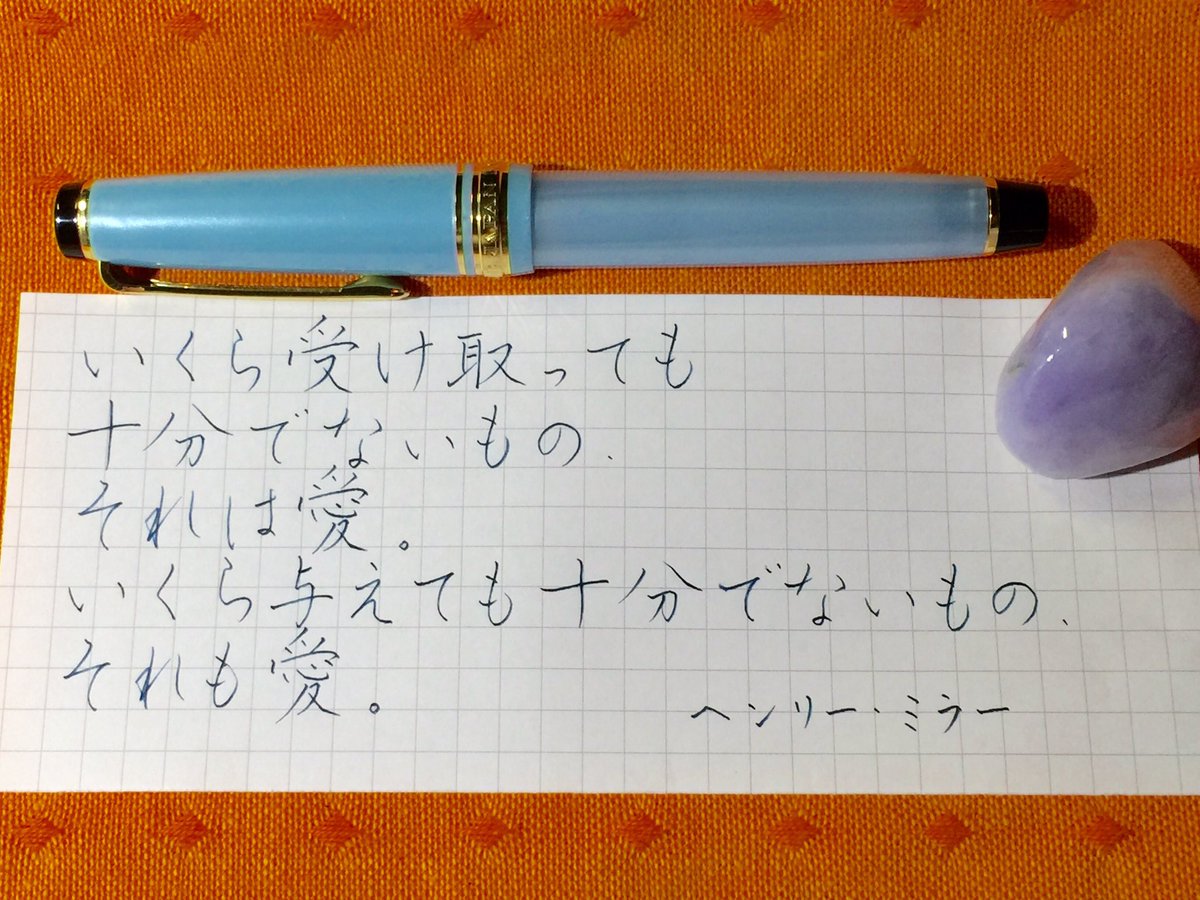 いくら受け取っても
十分でないもの.
それは愛。
いくら与えても十分でないもの.
それも愛。
ヘンリー・ミラー